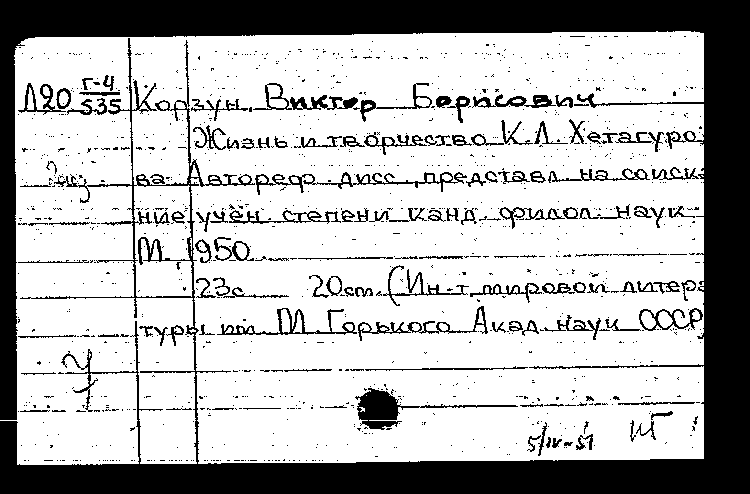 Л20 Г-4/535 Корзун, Виктор Борисович
Жизнь и творчество К.Л. Хетагуро-
ва Автореф. дисс., представл. на соиска-
ние учён. степени канд. филол. наук
М. 1950.
23с. 20cm. (Ин-т мировой литера-
туры им. М. Горького Акад. наук СССР
5/IV-51